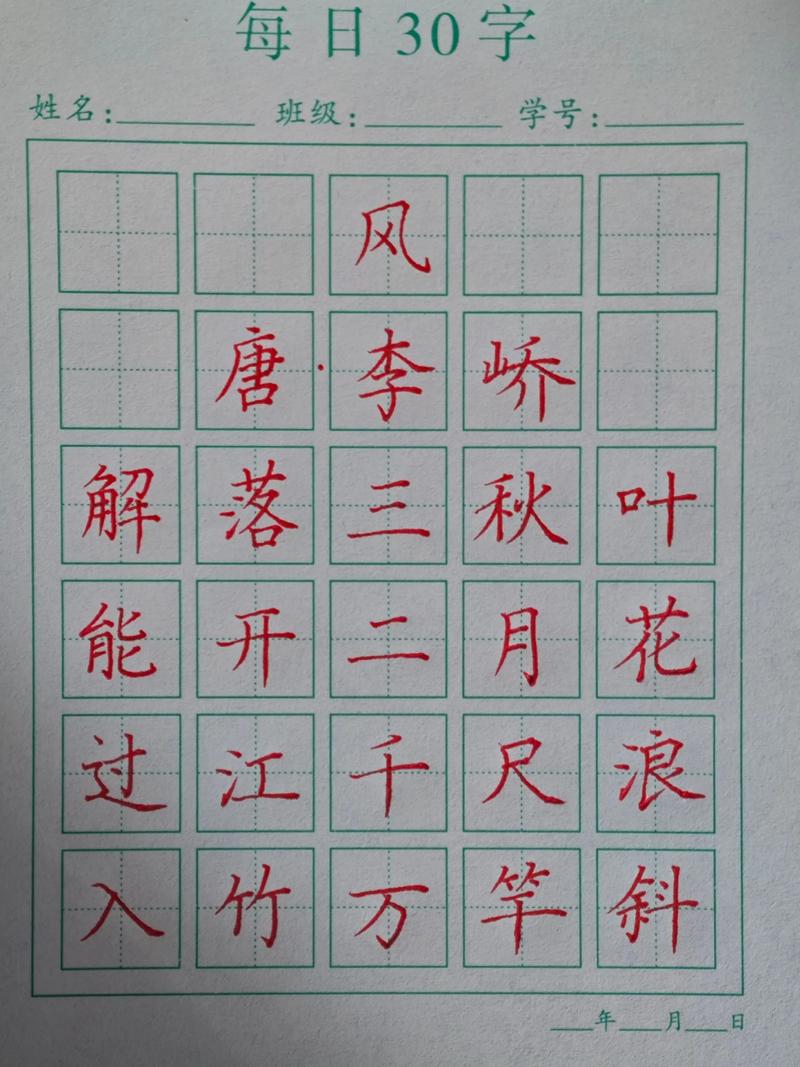 每日30字
姓名:______ 班级:______ 学号:______
风
唐·李峤
解落三秋叶
能开二月花
过江千尺浪
入竹万竿斜
___年___月___日